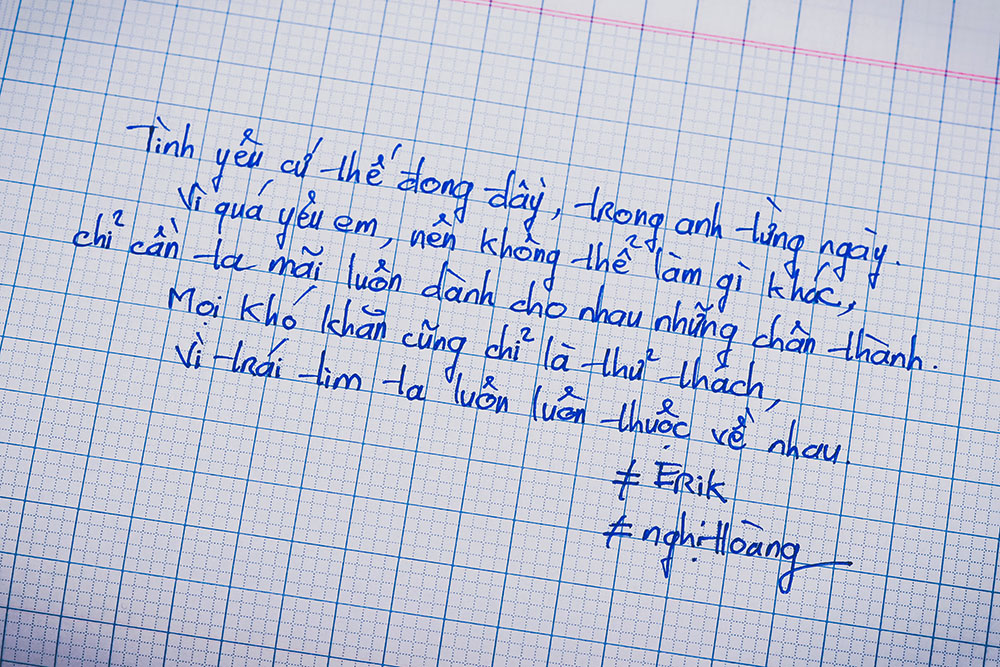 Tình yêu cứ thế đong đầy, trong anh từng ngày.
Vì quá yêu em, nên không thể làm gì khác,
chỉ cần ta mãi luôn dành cho nhau những chân thành.
Mọi khó khăn cũng chỉ là thử thách,
Vì trái tim ta luôn luôn thuộc về nhau.
# ERiK
# nghị Hoàng